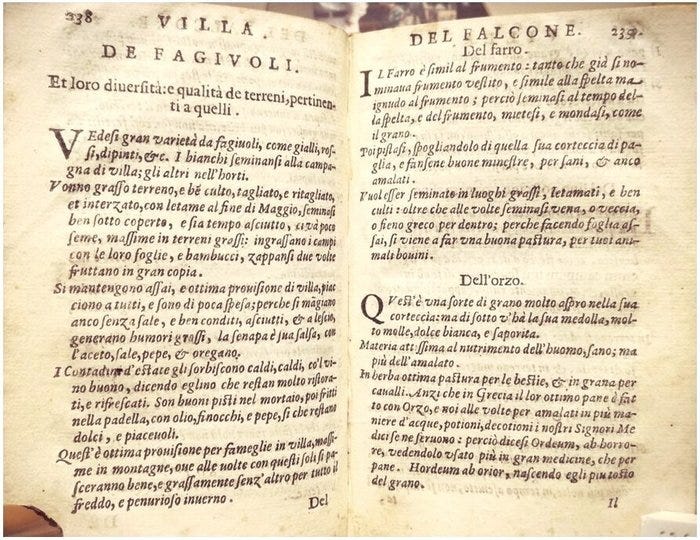 238
VILLA.
DE FAGIVOLI.
Et loro diuersità: e qualità de terreni, pertinen-
ti a quelli.
VEdesi gran varietà da fagiuoli, come gialli, ros-
si, dipinti, &c. I bianchi seminansi alla campa-
gna di villa; gli altri nell'horti.
Vonno grasso terreno, e bē culto, tagliato, e ritagliato,
et interzato, con letame al fine di Maggio, seminasi
ben sotto coperto, e sia tempo asciutto, ci và poco
seme, massime in terreni grassi: ingrassano i campi
con le loro foglie, e bambucci, zappansi due volte
fruttano in gran copia.
Si mantengono assai, e ottima prouisione di villa, piac
ciono a tutti, e sono di poca spesa; perche si māgiano
anco senza sale, e ben conditi, asciutti, & a lesso,
generano humori grossi, la senapa è sua salsa, con
l'aceto, sale, pepe, & oregano.
I Contadini d'estate gli sorbiscono caldi, caldi, co'l vi-
no buono, dicendo eglino che restan molto ristora-
ti, e rifrescati. Son buoni pisti nel mortaio, poi fritti
nella padella, con olio, finocchi, e pepe, si che restano
dolci, e piaceuoli.
Quest'è ottima prouisione per fameglie in villa, massi-
me in montagne, oue alle volte con questi soli si pa-
sceranno bene, e grassamente senz'altro per tutto il
freddo, e penurioso inuerno.
Del
DEL FALCONE.
239
Del farro.
IL Farro è simil al frumento: tanto che già si no-
minaua frumento vestito, e simile alla spelta ma
ignudo al frumento; perciò seminasi al tempo del-
la spelta, e del frumento, mietesi, e mondasi, come
il grano.
Poi pistasi, spogliandolo di quella sua corteccia di pa-
glia, e fansene buone minestre, per sani, & anco
amalati.
Vuol esser seminato in luoghi grassi, letamati, e ben
culti: oltre che alle volte seminasi vena, o veccia,
o fieno greco per dentro; perche facendo foglia as-
sai, si viene a far vna buona pastura, per tuoi ani-
mali bouini.
Dell'orzo.
QVest'è vna sorte di grano molto aspro nella sua
corteccia: ma di sotto v'hà la sua medolla, mol-
to molle, dolce bianca, e saporita.
Materia attissima al nutrimento dell'huomo, sano; ma
più dell'amalato.
In herba ottima pastura per le bestie, & in grana per
caualli. Anzi che in Grecia il lor ottimo pane è fat
to con Orzo, e noi alle volte per amalati in più ma-
niere d'acque, potioni, decotioni i nostri Signori Me
dici se ne seruono: perciò dicesi Ordeum, ab horro-
re, vedendolo vsato più in gran medicine, che per
pane. Hordeum ab orior, nascendo egli piu tosto
del grano.
Il